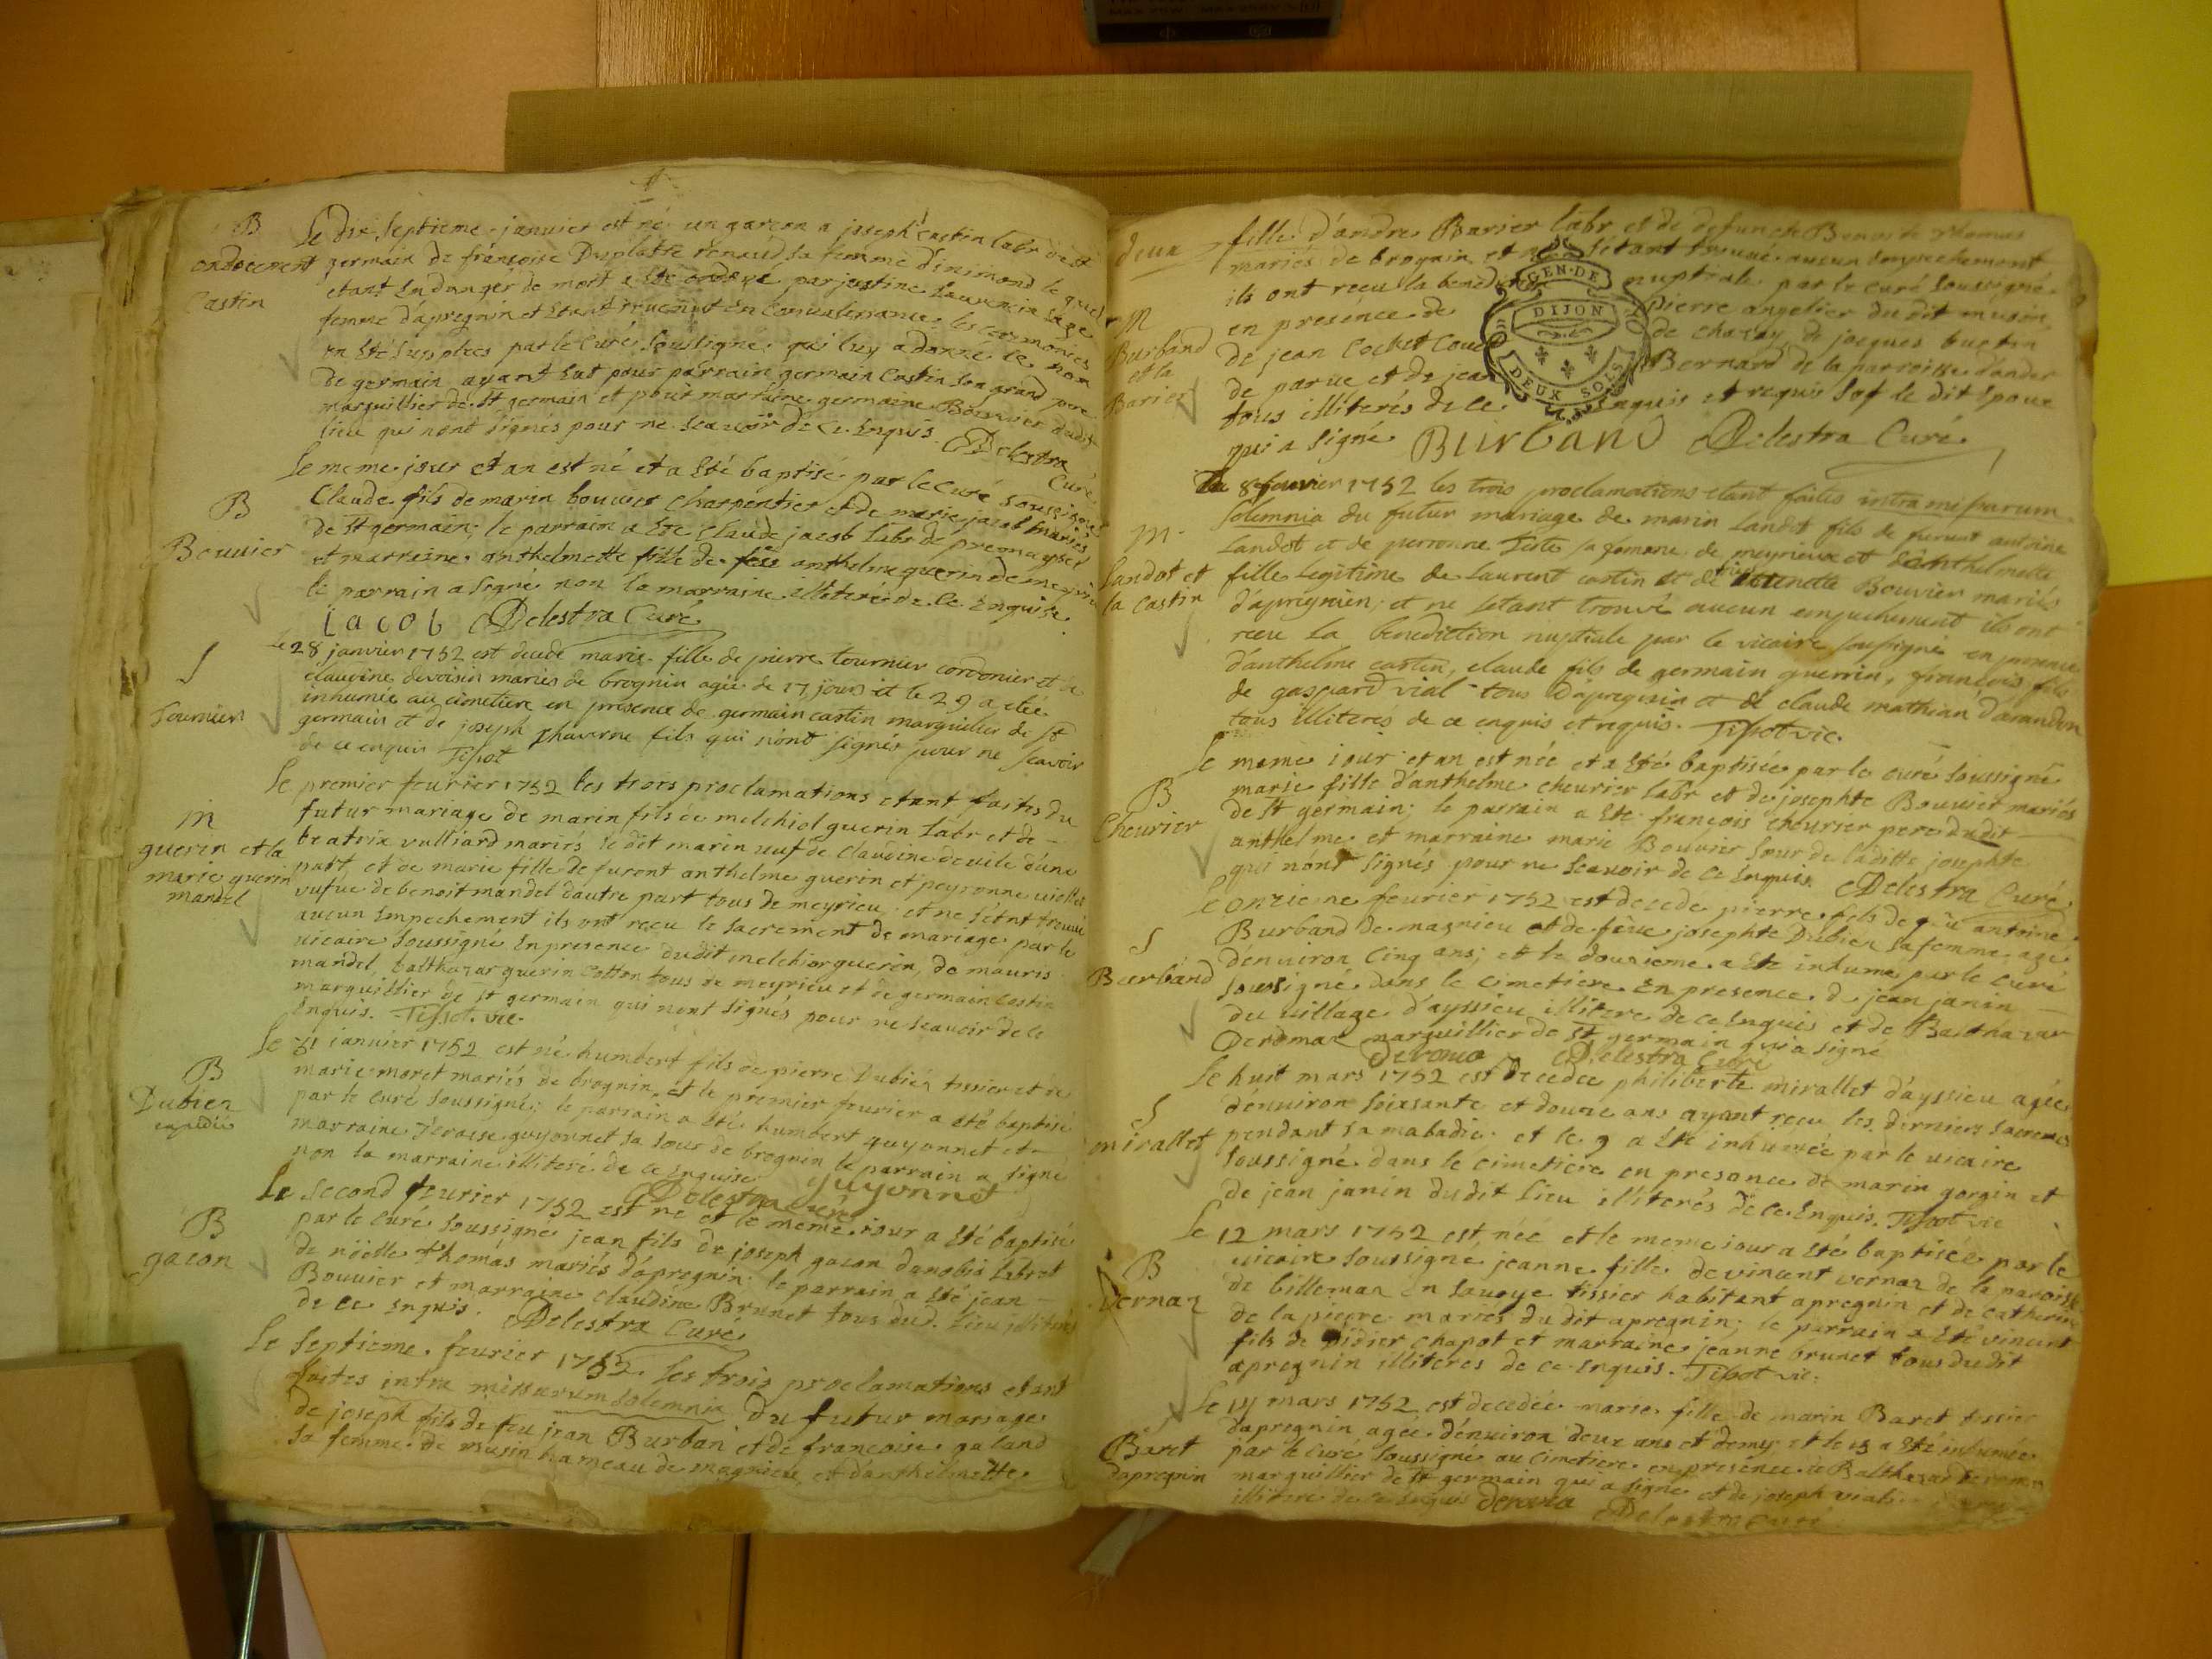 B
ondoiement
Castin
Le dix septieme janvier est né un garçon a joseph castin labr de st
germain de françoise Duplatre renaud sa femme d'inimond le quel
etant En danger de mort a Eté ondoyé par justine Laurencin sage
femme d'apregnin et Etant revenut En convalessance les ceremonies
on Eté supplées par le Curé soussigné qui luy a donné le nom
de germain ayant Eut pour parrain germain Castin son grand pere
marguillier de St germain et pour marraine germaine Bouvier dudit
lieu qui n'ont signés pour ne scavoir de ce Enquis. Delestra
Curé
B
Bouvier
Le meme jour et an est né et a Eté baptisé par le Curé soussigné
Claude fils de marin bouvier charpentier et de marie jacob mariés
de St germain; le parrain a Eté Claude jacob labr de premeyzel
et marraine anthelmette fille de feu anthelme guerin de meyrieu
le parrain a signé non la marraine illiterée de ce Enquise.
Jacob Delestra Curé
S
Tournier
Le 28 janvier 1752 est decedé marie fille de pierre tournier cordonier et de
claudine devoisin mariés de brognin agée de 17 jours et le 29 a etée
inhumée au cimetiere en presence de germain castin marguillier de St
germain et de joseph thaverne fils qui n'ont signés pour ne scavoir
de ce enquis Tissot
M
guerin et la
marie guerin
mandel
Le premier fevrier 1752 les trois proclamations etant faites du
futur mariage de marin fils de melchiol guerin labr et de
beatrix vulliard mariés le dit marin veuf de Claudine devele d'une
part et de marie fille de furont anthelme guerin et peyronne viollet
vefve de benoit mandel d'autre part tous de meyrieu; et ne s'étant trouvé
aucun Empechement ils ont reçu le sacrement de mariage par le
vicaire soussigné En presence dudit melchior guerin, de mauris
mandel, balthazar guerin cotton tous de meyrieu et de germain castin
marguillier de St germain qui n'ont signés pour ne scavoir de ce
Enquis. Tissot. vic.
B
Dubien
expédié
Le 31 janvier 1752 est né humbert fils de pierre Dubien tissier et de
marie moret mariés de brognin et le premier fevrier a eté baptisé
par le curé soussigné; le parrain a Eté humbert guyonnet et
marraine Teraese guyonnet sa sour de brognin le parrain a signé
non la marraine illiterée de ce Enquise guyonnet
Delestra curé
B
gacon
Le second fevrier 1752 est né et le meme iour a Eté baptisé
par le Curé soussigné jean fils de joseph gacon danobis labr et
de noëlle thomas mariés d'apregnin; le parrain a Eté jean
Bouvier et marraine Claudine Brunet tous dud. Lieu illiterés
de ce Enquis. Delestra Curé
Le septieme fevrier 1752 les trois proclamations etant
faites intra missarum solemnia du futur mariage
de joseph fils de feu jean Burban et de francoise galand
sa femme de musin hameau de magnieu et d'anthelmette
deux
M
Burband
et la
Barier
fille d'andre Barier labr et de defuncte Benoite thomas
mariés de brognin et ne s'étant trouvé aucun Empechement
ils ont reçu la benediction nuptiale par le curé soussigné
en presence de pierre angelier du dit musin
de jean Cochet de chazey de jacques buttin
de parve et de jean Bernard de la parroisse d'ander
tous illiterés de ce Enquis et requis sof le dit Epoux
qui a signé BURBAND Delestra Curé
M.
Landot et
la Castin
Le 8 fevrier 1752 les trois proclamations etant faites intra missarum
solemnia du futur mariage de marin Landot fils de furent antoine
Landot et de perronne Teste sa femme de meyrieux et d'anthelmette
fille Legitime de Laurent castin et de Bouvier mariés
d'apregnien; et ne s'etant trouvé aucun empechement ils ont
recu la benediction nuptiale par le vicaire soussigné en presence
d'anthelme castin, claude fils de germain guerrin, françois fils
de gaspard vial tous d'apregnin et de claude mathian d'arandon
tous illiterés de ce enquis et requis. Tissot vic.
B
Cheurier
Le meme iour et an est née et a Eté baptisée par le curé soussigné
marie fille d'anthelme cheurier labr et de josephte Bouvier mariés
de St germain; le parrain a Eté françois cheurier pere dudit
anthelme et marraine marie Bouvier sour de laditte josephte
qui n'ont signés pour ne scavoir de ce Enquis. Delestra Curé
S
Burband
Le onzieme fevrier 1752 est decede pierre fils de feu antoine
Burband de magnieu et de feue josephte Dubien sa femme agé
d'environ Cinq ans; et le douzieme a Eté inhumé par le Curé
soussigné dans le cimetiere En presence de jean janin
du village d'ayssieu illiteré de ce Enquis et de Balthazar
Deromaz marguillier de St germain qui a signé
Deroma Delestra Curé
S
mirallet
Le huit mars 1752 est Decedee philiberte mirallet d'ayssieu agée
d'environ soixsante et douze ans ayant reçu les derniers sacrements
pendant sa maladie et le 9 a Eté inhumée par le vicaire
soussigné dans le cimetiere en presance de marin gorgin et
de jean janin dudit Lieu illiterés de ce Enquis. Tissot vic
B
Vernaz
Le 12 mars 1752 est née et le meme iour a Eté baptisée par le
vicaire soussigné jeanne fille de vincent vernaz de la paroisse
de billemaz en savoye tissier habitant apregnin et de catherine
de la pierre mariés du dit apregnin; le parrain a Eté vincent
fils de Didier chapot et marraine jeanne brunet tous dudit
apregnin illiterés de ce Enquis. Tissot vic.
Baret
d'apregnin
Le 14 mars 1752 est decedée marie fille de marin Baret tissier
d'apregnin agée d'environ deux ans et demy et le 15 a Eté inhumée
par le curé soussigné au cimetiere en presence de Balthazar Deroma
marguillier de St germain qui a signé et de joseph vial
illiteré de ce Enquis Deroma Delestra curé
GEN. DE
DIJON
DEUX SOLS